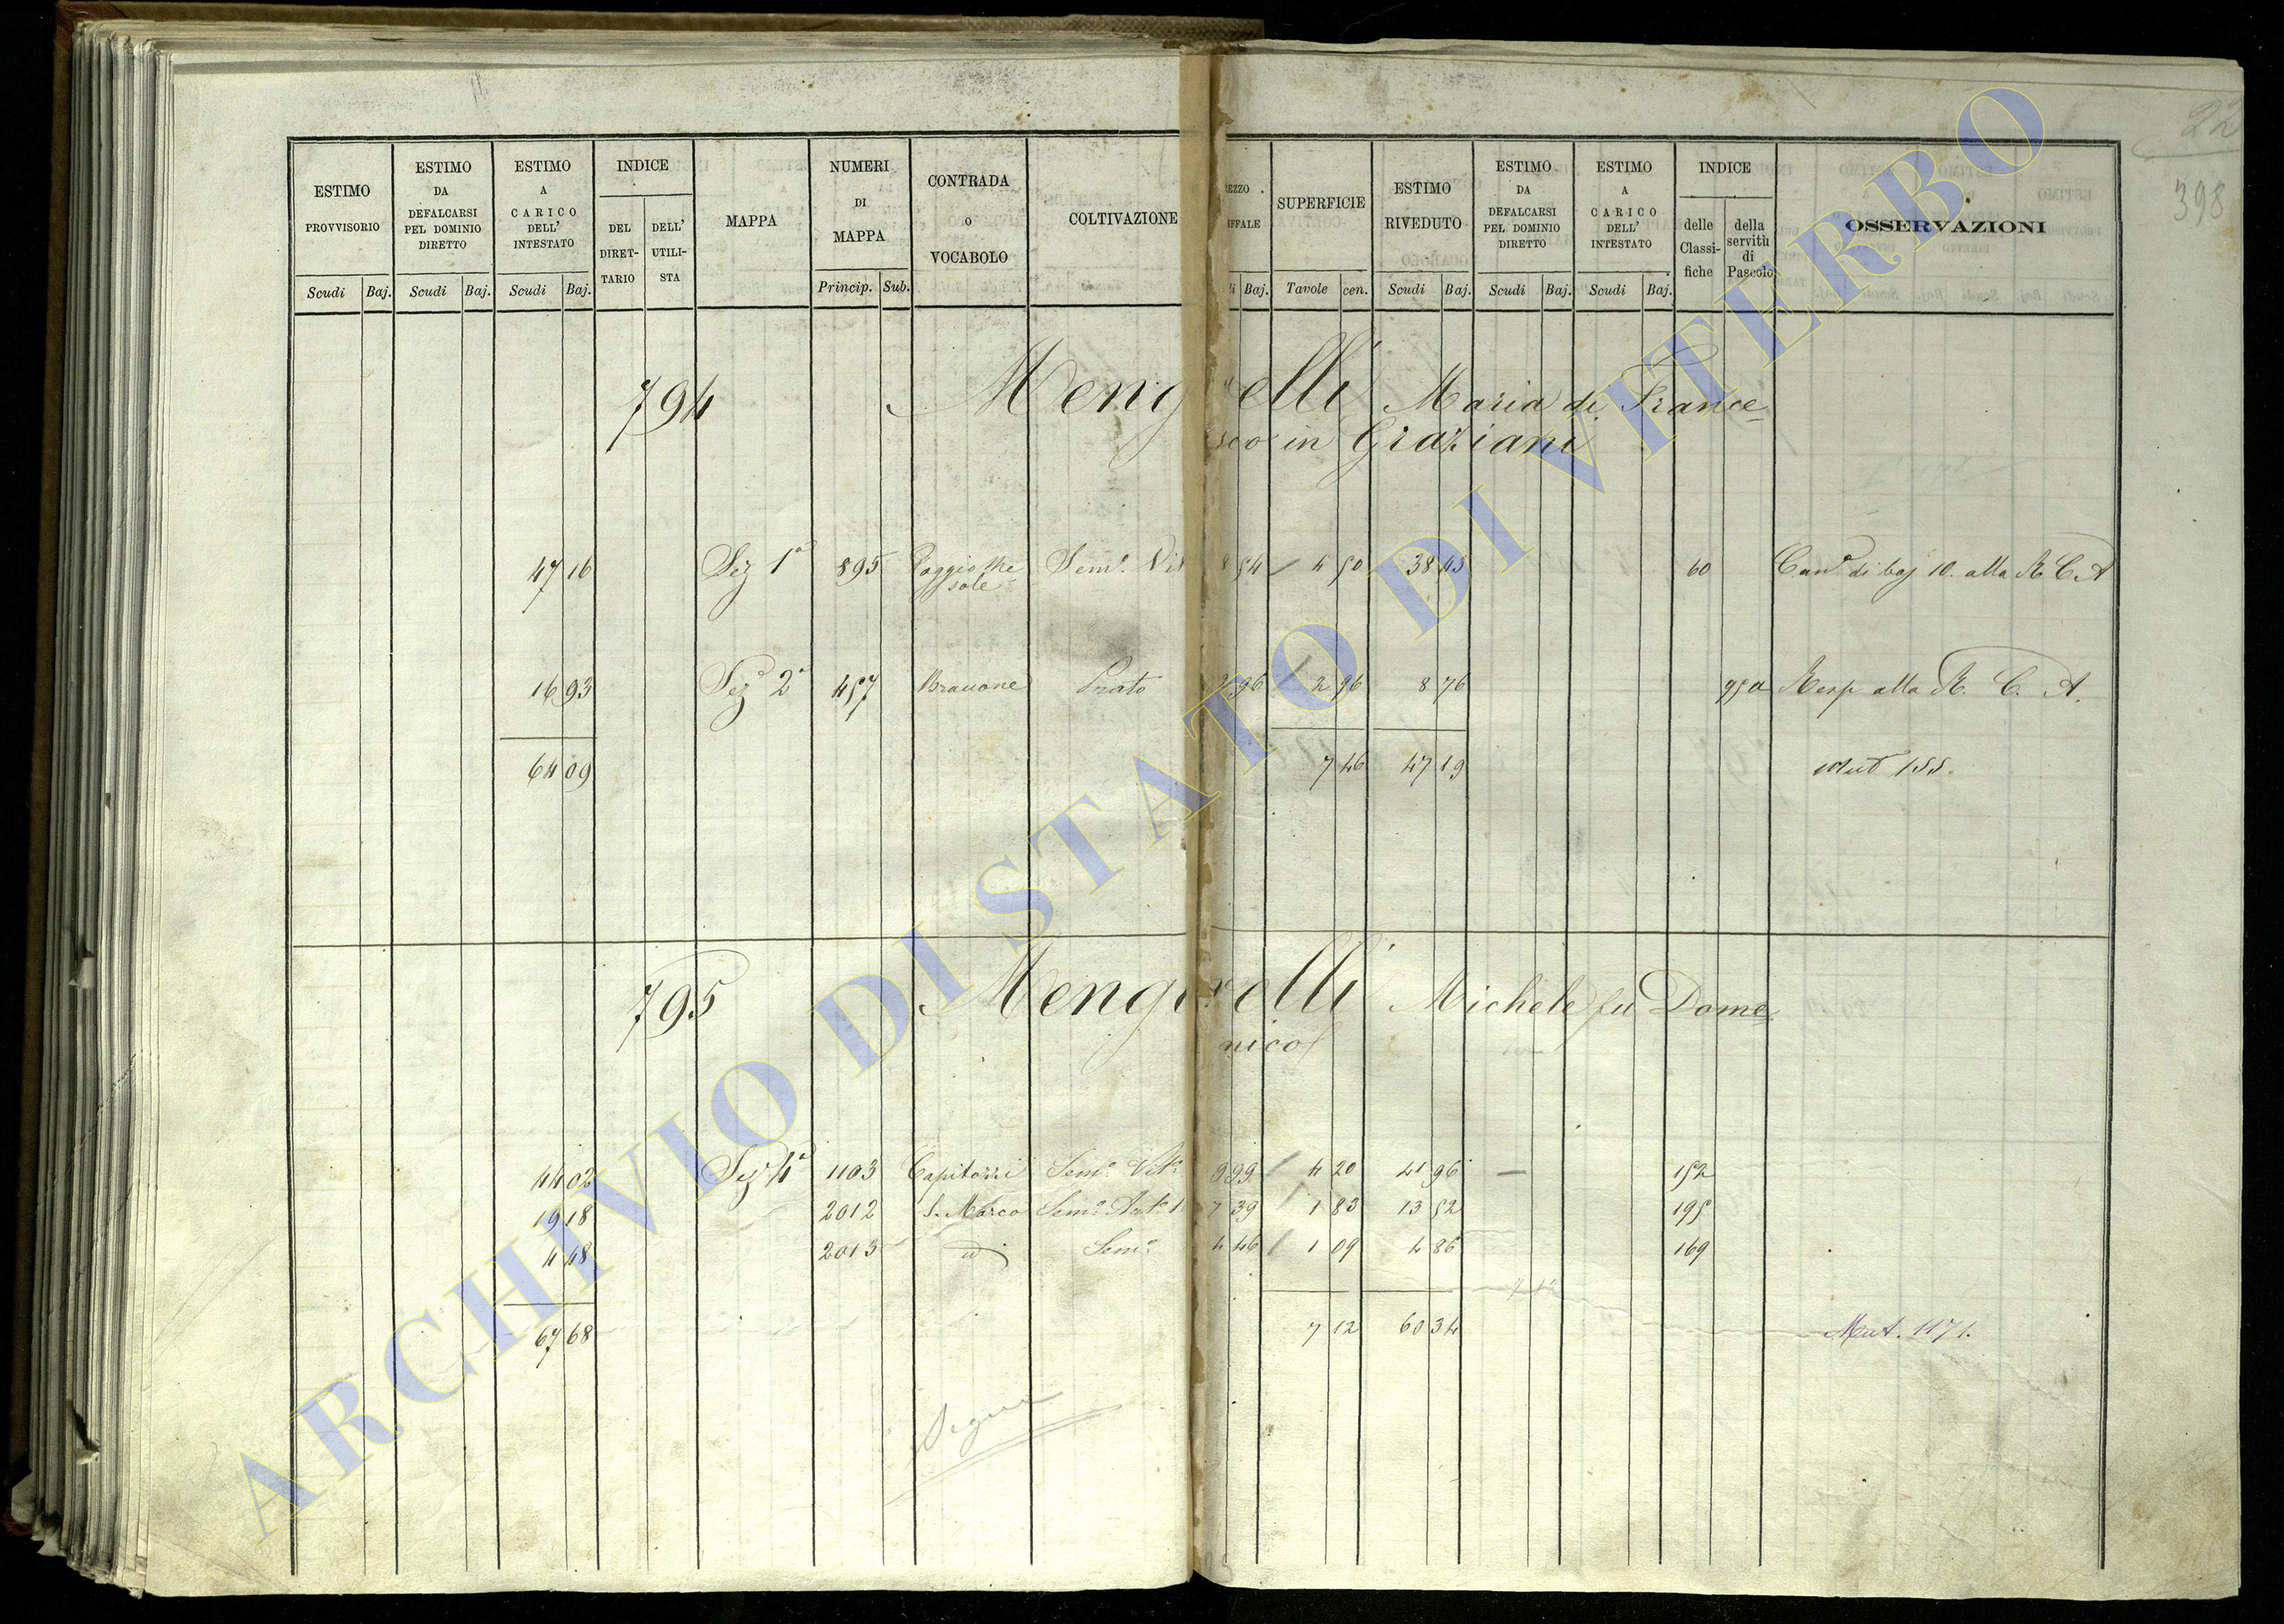 22
398
ESTIMO PROVVISORIO Scudi Baj.
ESTIMO DA DEFALCARSI PEL DOMINIO DIRETTO Scudi Baj.
ESTIMO A CARICO DELL' INTESTATO Scudi Baj.
INDICE DEL DIRET-TARIO DELL' UTILI-STA
MAPPA
NUMERI DI MAPPA Princip. Sub.
CONTRADA O VOCABOLO
COLTIVAZIONE
EZZO IFFALE Baj.
SUPERFICIE Tavole cen.
ESTIMO RIVEDUTO Scudi Baj.
ESTIMO DA DEFALCARSI PEL DOMINIO DIRETTO Scudi Baj.
ESTIMO A CARICO DELL' INTESTATO Scudi Baj.
INDICE delle Classi-fiche della servitù di Pascolo
OSSERVAZIONI
794 Meng elli Maria di France
sco in Graziani
47 16 Sez 1ª 895 Poggio Me Semo. Vit 8 54 4 50 38 43 60 Cano di baj 10. alla R C A
sole
16 93 Sezo 2ª 457 Prato 2 96 2 96 8 76 95 a Resp alla R. C. A.
64 09 7 46 47 19 Mut 155.
795 Meng relli Michele fu Dome
nico
44 02 Sez 4ª 1103 Capitozzi Semo Vito 9 99 4 20 41 96 — 152
19 18 2012 S. Marco Semo Arbto 1 7 39 1 83 13 52 195
4 48 2013 id Semo 4 46 1 09 4 86 169
67 68 7 12 60 34 Mut. 1171.
Segue
ARCHIVIO DI STATO DI VITERBO